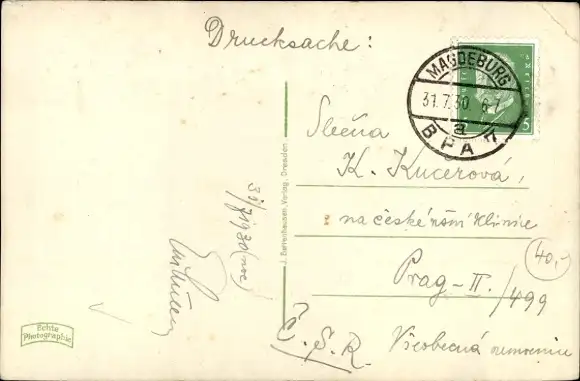 Drucksache:
MAGDEBURG
31.7.30 6-7
a
BPA 7
Slečna
K. Kucerová,
na české klinice
Prag-II./499
Č.S.R. Všeobecná nemocnice
40,-
31/7 1930 (noc)
J. Bettenhausen, Verlag, Dresden
Echte
Photographie